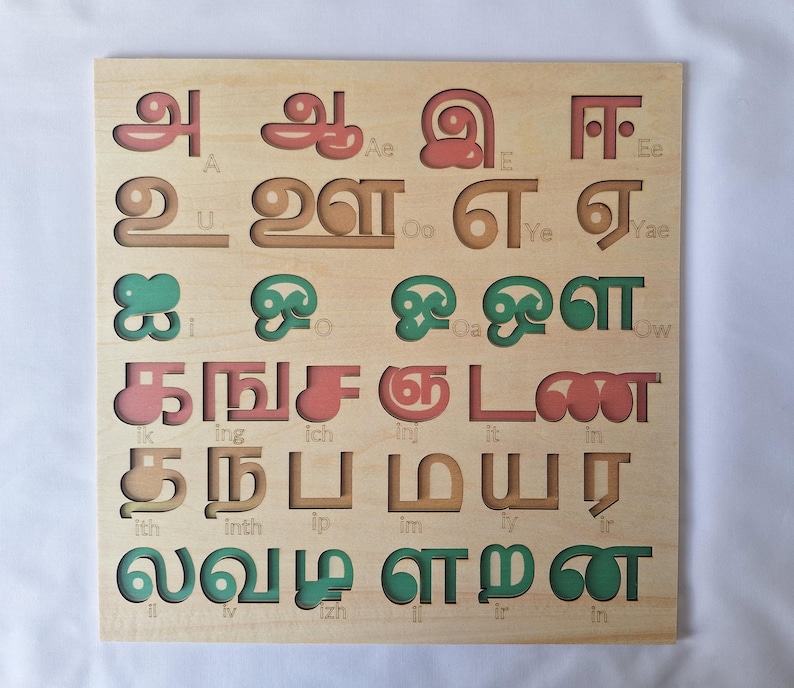 அ A ஆ Ae இ E ஈ Ee
உ U ஊ Oo எ Ye ஏ Yae
ஐ i ஒ O ஓ Oa ஔ Ow
க ங ச ஞ ட ண
ik ing ich inj it in
த ந ப ம ய ர
ith inth ip im iy ir
ல வ ழ ள ற ன
il iv izh il ir in